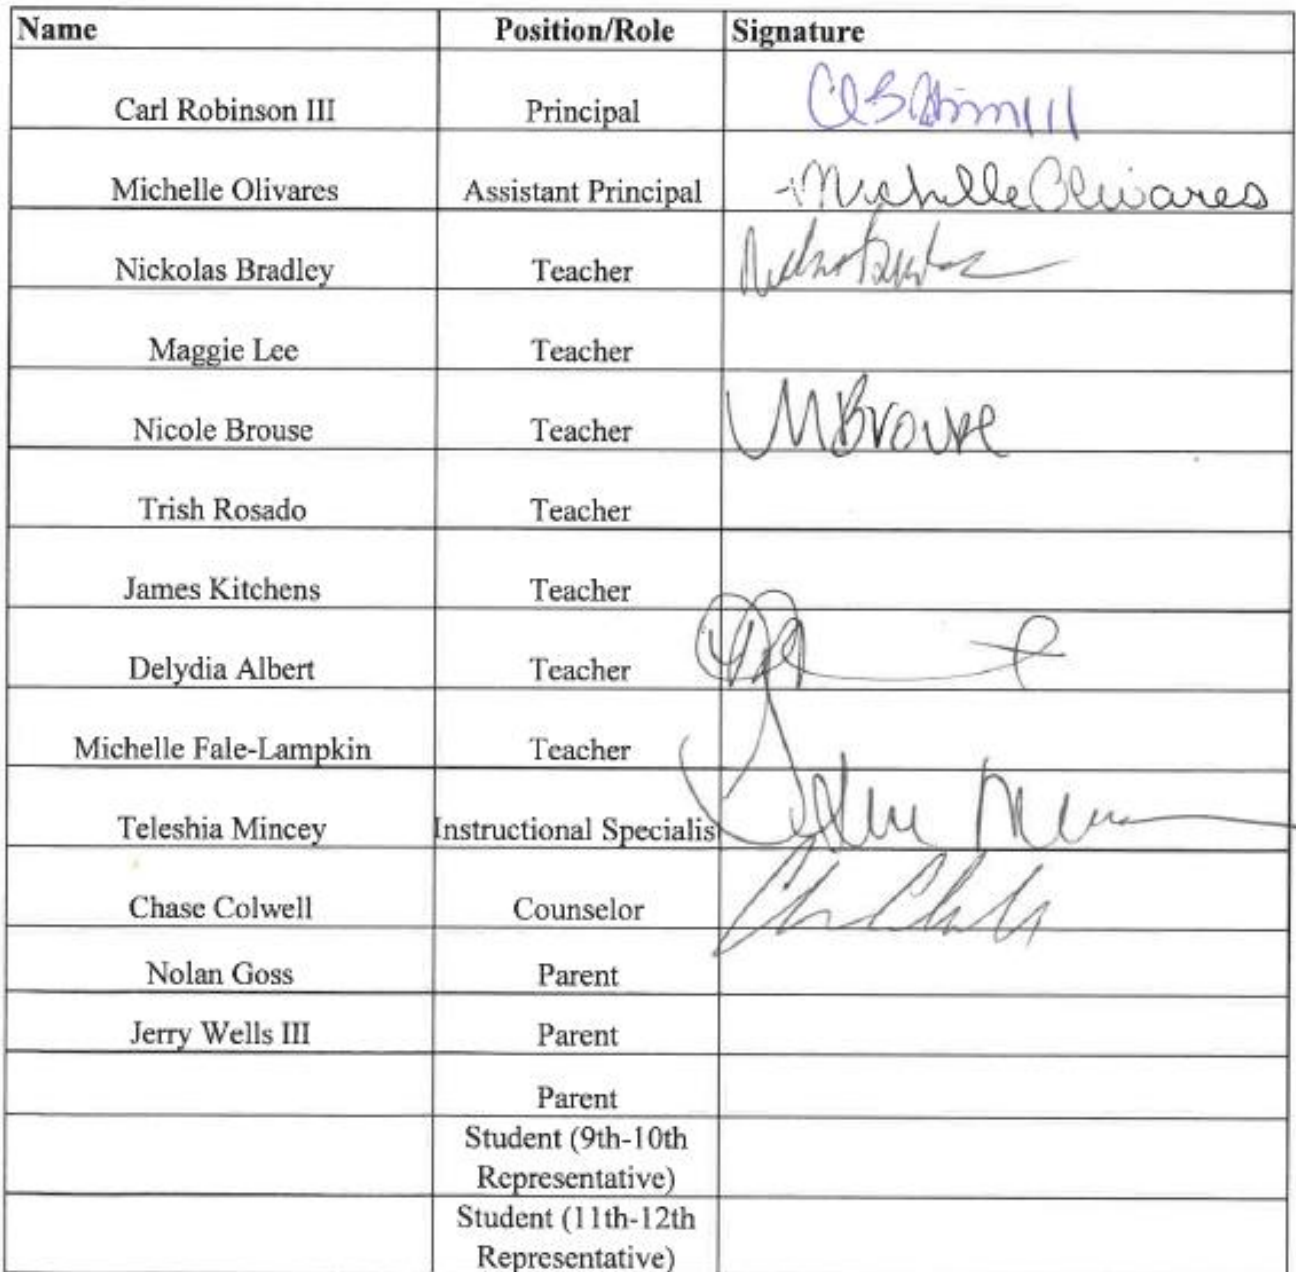 Name Position/Role Signature
Carl Robinson III Principal
Michelle Olivares Assistant Principal Michelle Olivares
Nickolas Bradley Teacher
Maggie Lee Teacher
Nicole Brouse Teacher NBrouse
Trish Rosado Teacher
James Kitchens Teacher
Delydia Albert Teacher
Michelle Fale-Lampkin Teacher
Teleshia Mincey Instructional Specialis
Chase Colwell Counselor
Nolan Goss Parent
Jerry Wells III Parent
Parent
Student (9th-10th
Representative)
Student (11th-12th
Representative)